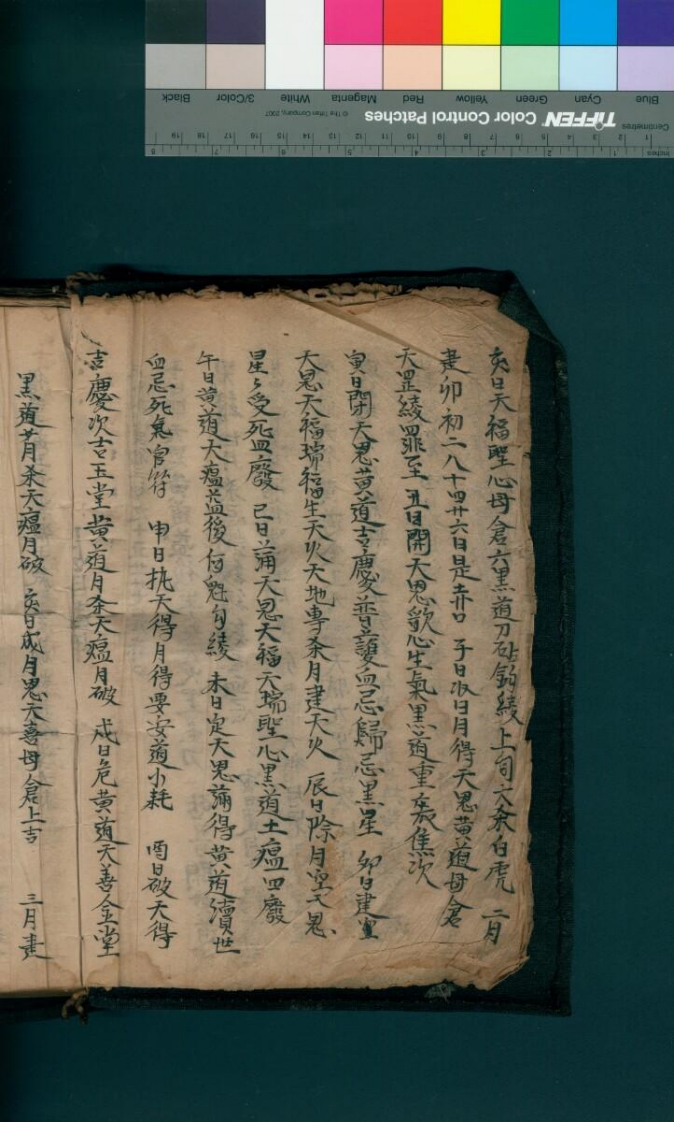 亥日天福聖心母倉六黑道刀砧鈎綾上旬大杀白虎 二月
建卯初二八十四廿六日是赤口 子日收日月得天恩黄道母倉
天罡綾羅至 丑日開天恩 心生氣黑道重喪焦次
寅日閉天恩黄道吉慶普護血忌歸忌黑星 卯日建
天恩天福瑞福生天火天地專杀月建天火 辰日除月空天恩
星々受死血癈 巳日滿天恩天福天瑞聖心黑道土瘟四廢
午日黄道大瘟益後何魁勾綾 未日定天恩滿得黄道續世
血忌死氣官符 申日执天得月得要安道小耗 酉日破天得
吉慶次吉玉堂黄道月杀天瘟月破 戍日危黄道天善金堂
黑道苐月杀天瘟月破 亥日成月恩天喜母倉上吉 三月建
Blue
Cyan
Green
Yellow
Red
Magenta
White
3/Color
Black
Centimetres
TIFFEN Color Control Patches
© The Tiffen Company, 2007
1 2 3 4 5 6 7 8 9 10 11 12 13 14 15 16 17 18 19
Inches
1 2 3 4 5 6 7 8